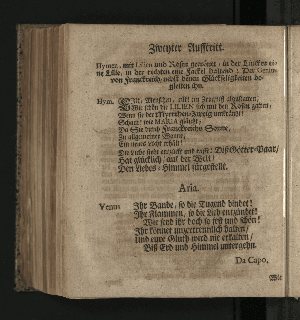 Zweyter Aufftritt.
Hymen, mit Lilien und Rosen gekrönt, in der Lincken ei-
ne Lilie, in der rechten eine Fackel haltend: Der Genius
von Franckreich, nebst denen Glückseligkeiten be-
gleiten ihn.
Hym. Ihr Menschen, mit im
Wie schön die LILIEN sich mit den Rosen gatten;
Wenn sie der Myrrthen-Zweig umkräntzt!
Schaut wie MARIA gläntzt;
Da Sie durch Franckreichs Sonne,
Zu allgemeiner Wonne,
Ein neues Licht erhält!
Die Liebe steht entzückt und rufft: Diß Götter-Paar,
Hat glücklich, auf der Welt,
Den Liebes-Himmel fürgestellt.
Aria.
Venus Ihr Bande, so die Tugend bindet!
Ihr Flammen, so die Lieb entzündet!
Wie seyd ihr doch so fest und schön!
Ihr könnet unzertrennlich halten,
Und eure Gluth wird nie erkalten,
Biß Erd und Himmel untergehn.
Da Capo.